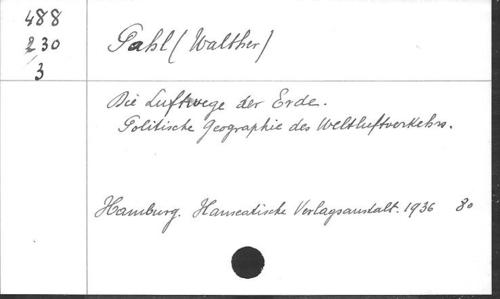 488
230
3
Pahl (Walther)
Die Luftwege der Erde.
Politische Geographie des Weltluftverkehrs.
Hamburg. Hanseatische Verlagsanstalt. 1936 8o